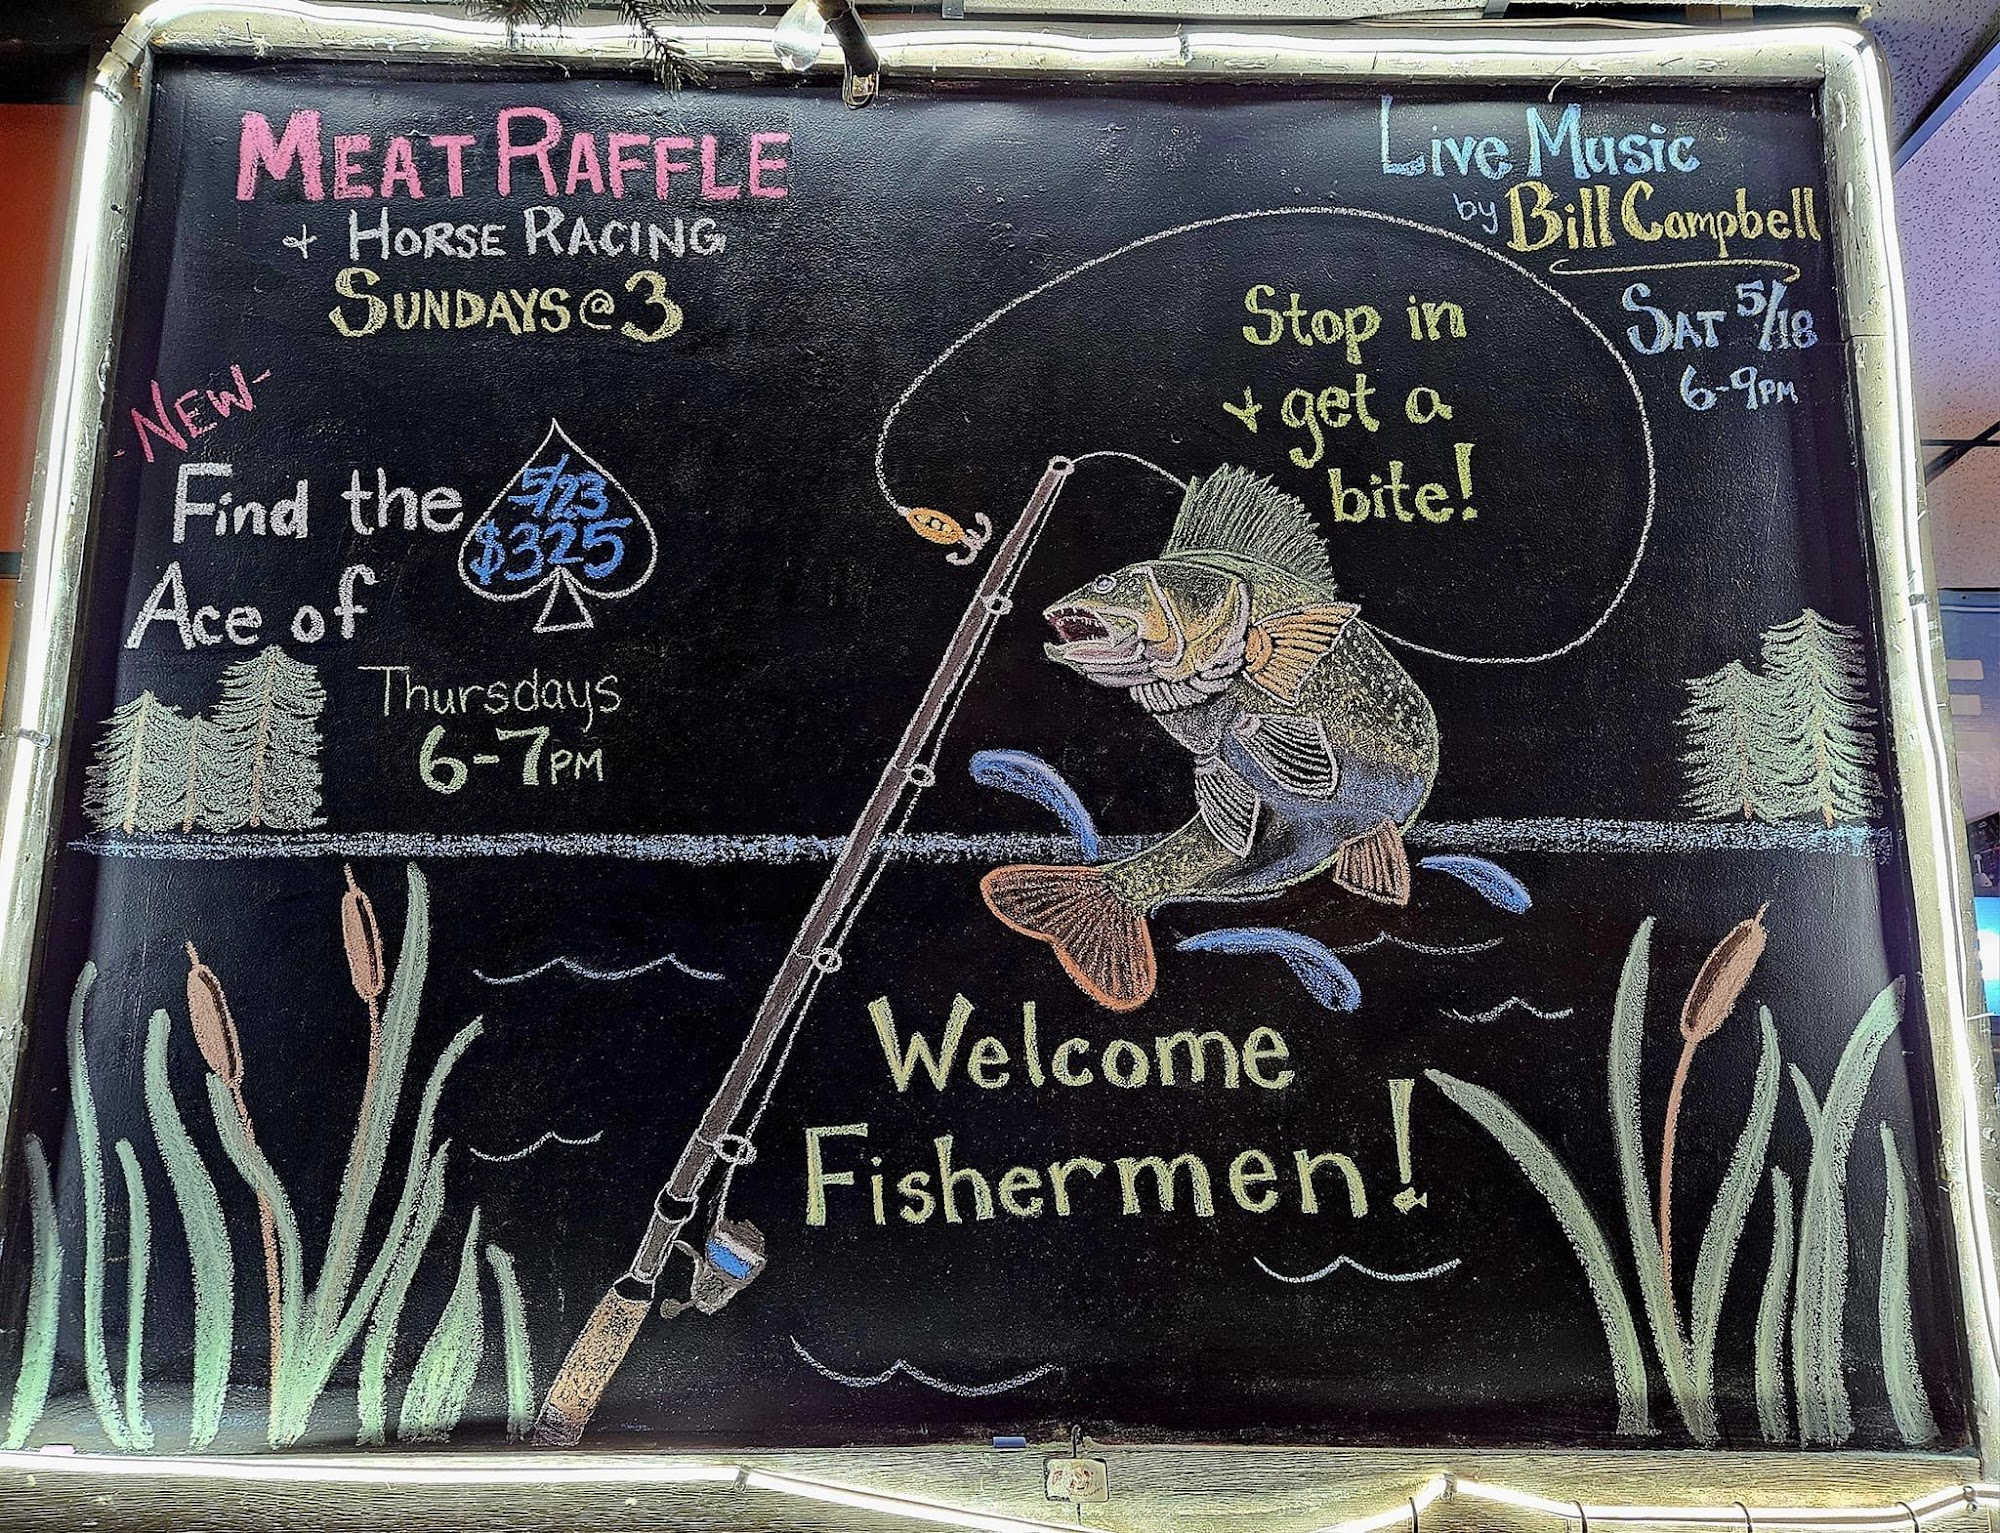 MEAT RAFFLE
+ HORSE RACING
SUNDAYS @ 3
NEW
Find the
Ace of
5/23
$325
Thursdays
6-7PM
Live Music
by Bill Campbell
SAT 5/18
6-9PM
Stop in
+ get a
bite!
Welcome
Fishermen!